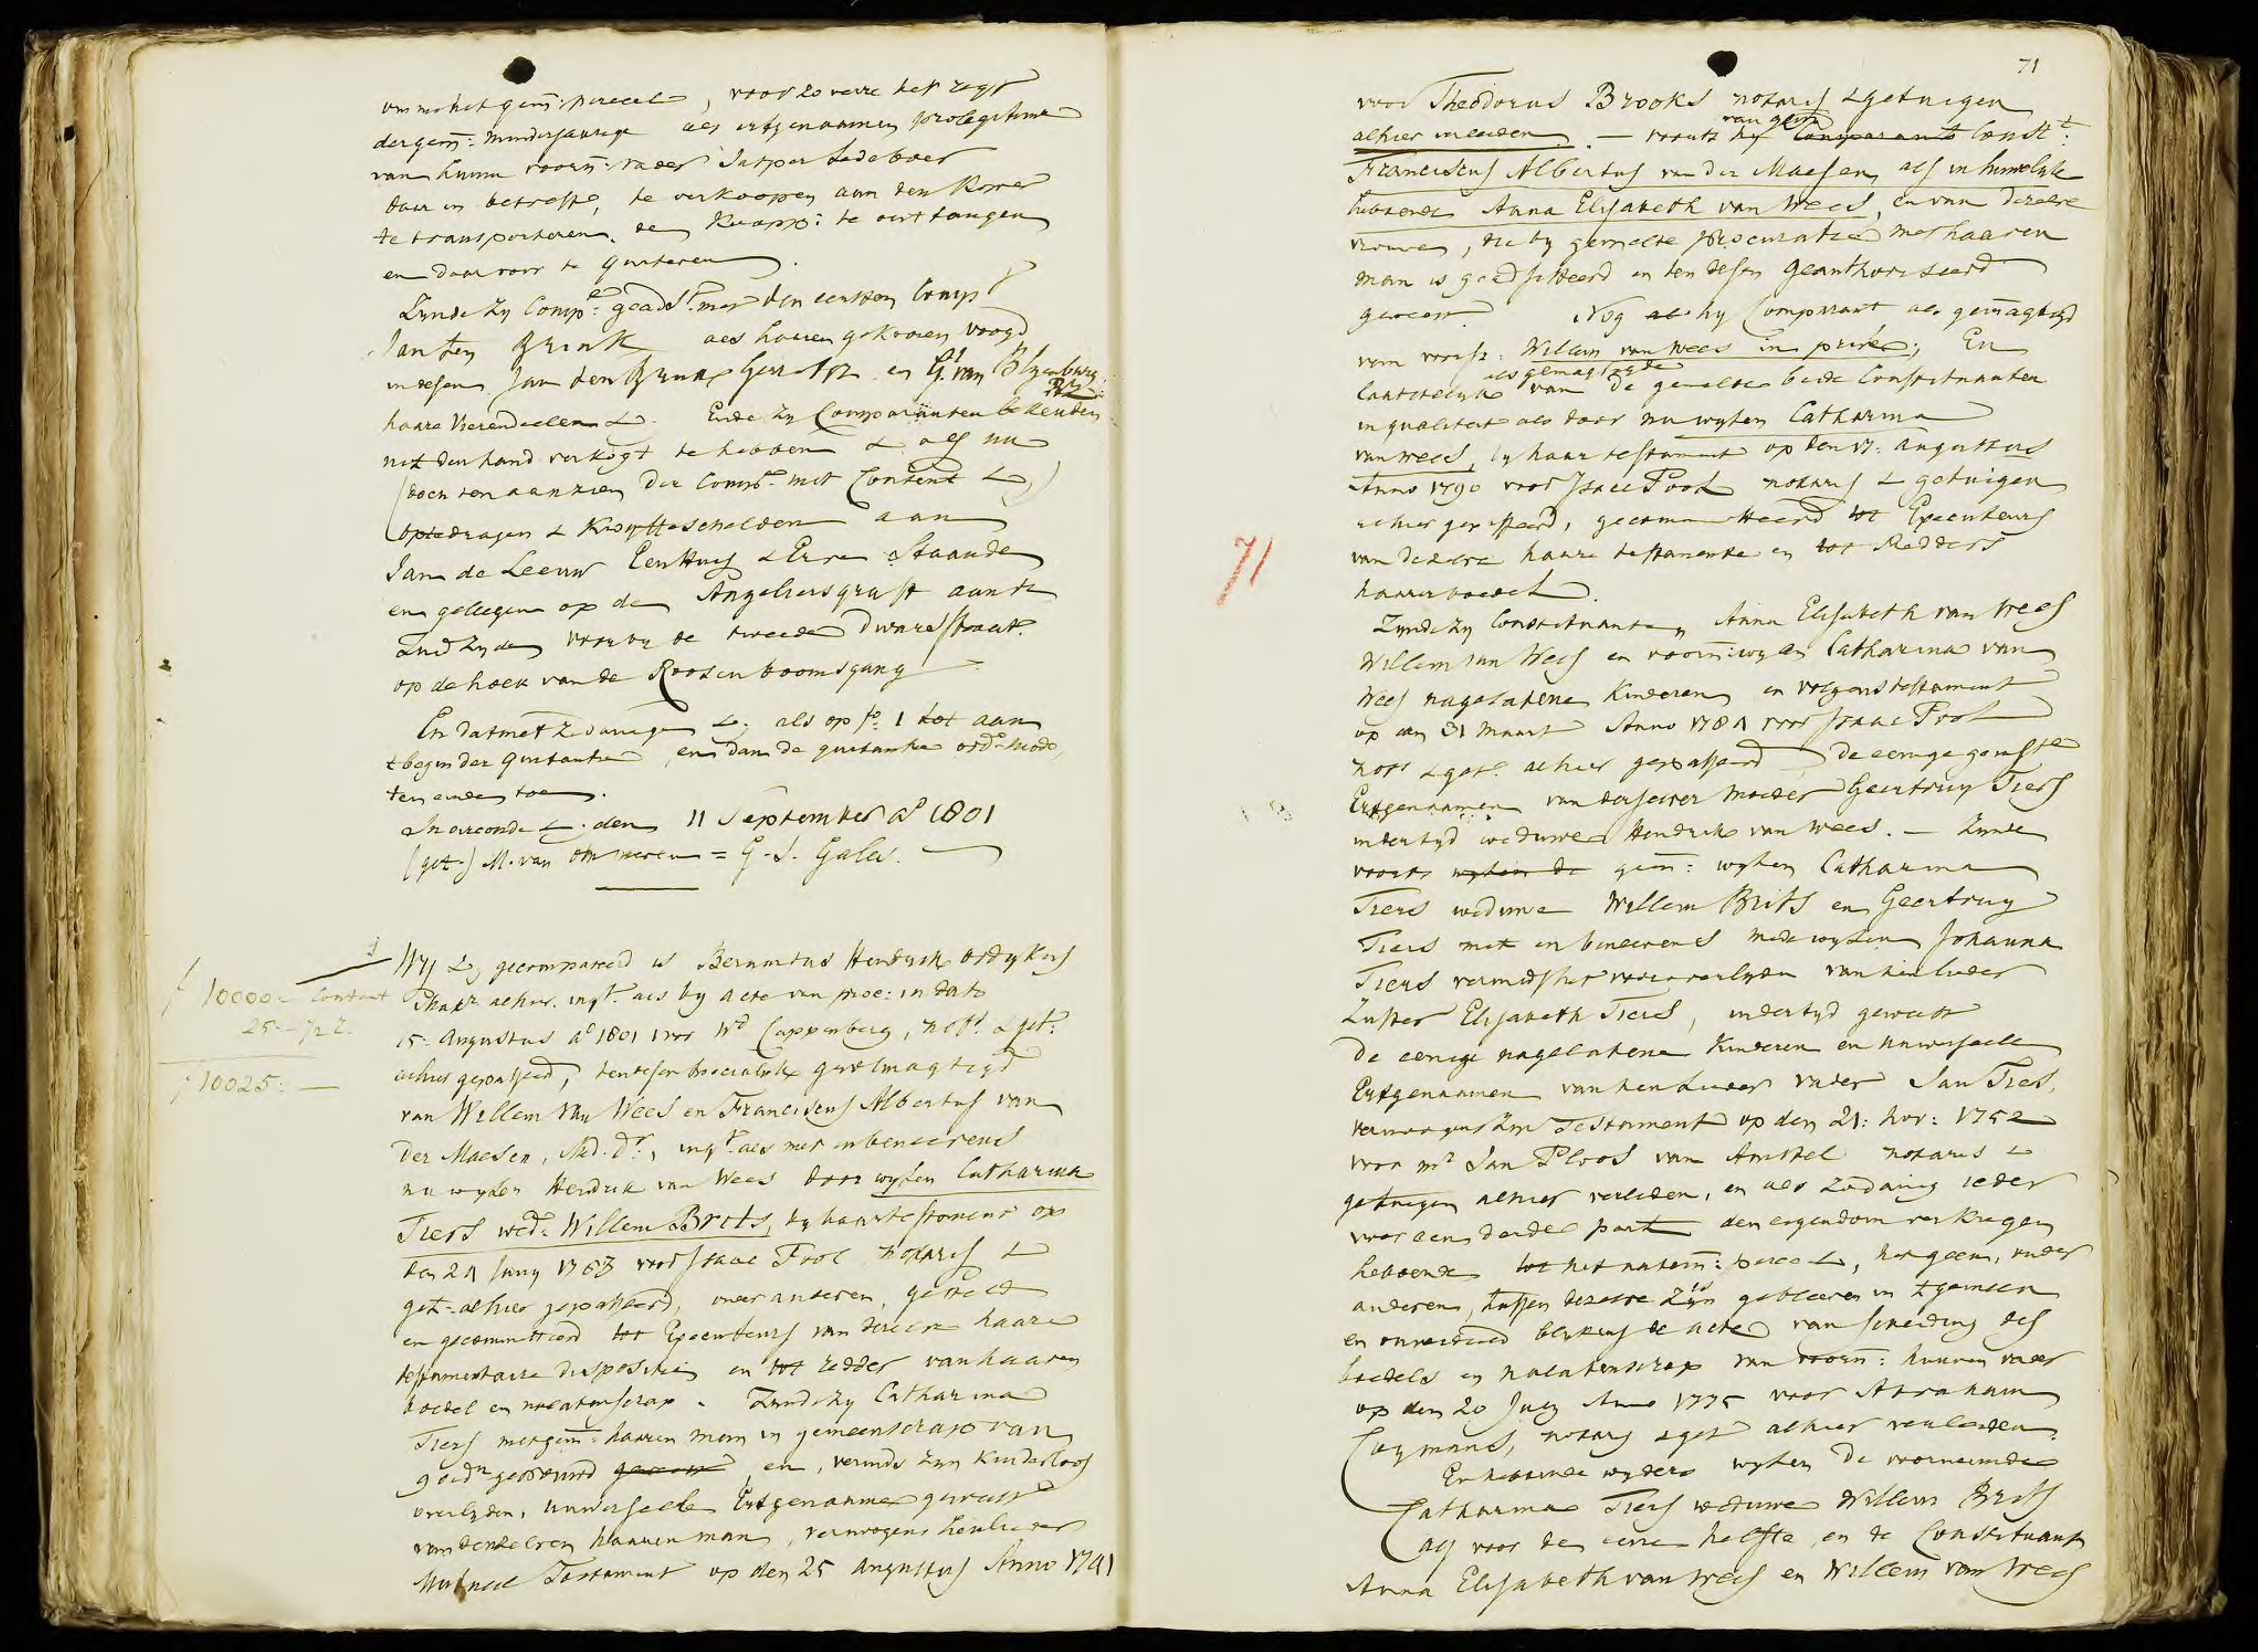 om in het gem: perceel, voor zo verre het regt
der gem: minderjarige als erfgenaamen prolegitima
van hunne voorn: vader Jasper Ledeboer
daar in betreffe, te verkoopen aan den Koper
te transporteren, de Koopp: te ontfangen
en daar voor te quiteren.
Zynde zy Comp:e geads:t met den eersten Comp:t
Jan ten Brink als haaren gekooren voogd
in desen Jan ten Brink Gerritsz en G: van Blyenburg
haare Vierendeelen &. Ende zy Comparanten bekenden
uit der hand verkogt te hebben & als nu
(doch ten aanzien der Comp:te met Consent &)
optedragen & kwyttescheldenn aan
Jan de Leeuw Een Huys & Erve Staande
en gelegen op de Angeliersgraft aan de
Zuidzyde voorby de tweede Dwarsstraat
op de hoek van de Roosenboomsgang
En dat met zodanigen & als op fo: 1 tot aan
t begin der quitantie, en dan de quitantie ord:o modo
ten einde toe.
In oirconde & den 11 September Ao 1801
(get:) M. van Ommeren = G. S. Gales.
10000:- Contant
25:-
10025:-
Wy & gecompareerd is Bernardus Hendrik Ordykers
alhier. in q:t als by acte van proc: in dato
15 Augustus Ao 1801 voor Wd Cappenberg, not:s & get:
alhier gepasseerd, ten desen specialyk gevolmagtigd
van Willem van Wees en Franciscus Albertus van
der Maesen, Med. Dr., in q:t als met en beneevens
nu wylen Hendrik van Wees door wylen Catharina
Tiers wede: Willem Brits, by haar testament op
den 24 Juny 1763 voor Isaac Pool Notaris &
get: alhier gepasseerd, onder anderen, gesteld
en gecommitteerd tot Executeurs van dezelve haare
testamentaire dispositie en tot redder van haaren
boedel en nalatenschap. Zynde zy Catharina
Tiers met gem: haaren man in gemeenschap van
goed:n getrouwd geweest, en, vermids zyn kinderloos
overlyden, universeele Erfgenaame geweest
van denzelven haaren man, vermogens henlieder
Mutueel Testament op den 25 Augustus Anno 1741
71
voor Theodorus Brooks notaris & getuigen
alhier verleeden. — voorts hy van gem Comparant Constt:
Franciscus Albertus van der Maesen, als in huwelyk
hebbende Anna Elisabeth van Wees, en van dezelve
vrouwe, die by gemelte procuratie met haaren
man is geadsisteerd en ten desen geauthoriseerd
geweest. Nog als hy Comparant als gemagtigd
van voorsz: Willem van Wees in privé; En
laatstelyk als gemagtigde van de gemelte beide Constituanten
in qualiteit als door nu wylen Catharina
van Wees, by haar testament op den 17: Augustus
Anno 1790 voor Isaac Pool notaris & getuigen
alhier gepasseerd, gecommitteerd tot Executeurs
van dezelve haare testamente en tot Redders
haares boedel.
71
Zynde zy Constituanten Anna Elisabeth van Wees
Willem van Wees en voorn: wylen Catharina van
Wees nagelatene kinderen en volgens testament
op den 31 Maart Anno 1784 voor Isaac Pool
not:s & get: alhier gepasseerd, de eenige geweest
Erfgenaamen van derselver moeder Geertruy Tiers
in der tyd weduwe Hendrik van Wees. — Zynde
voorts wylen de gem: wylen Catharina
Tiers weduwe Willem Brits en Geertruy
Tiers met en beneevens mede wylen Johanna
Tiers vermids het vooroverlyden van hen lieder
Zuster Elisabeth Tiers, indertyd geweest
de eenige nagelatene kinderen en universeele
Erfgenaamen van hen lieder vader Jan Tiers,
vermogens zyn Testament op den 21: Nov: 1752
voor mr Jan Ploos van Amstel notaris &
getuigen alhier verleden, en als zodanig ieder
voor een derde part den eigendom verkregen
hebbende tot het natem: perceel, het geen, onder
anderen, tussen dezelve zyn is gebleeven in t gemeen
en onverdeeld blykens de acte van scheiding des
boedels en nalatenschap van voorn: hunnen vader
op den 20 July Anno 1775 voor Abraham
Coymans, notaris & get: alhier verleden.
En hebbende wyders wylen de voornoemde
Catharina Tiers weduwe Willem Brits
als voor de eene helfte, en de Constituanten
Anna Elisabeth van Wees en Willem van Wees